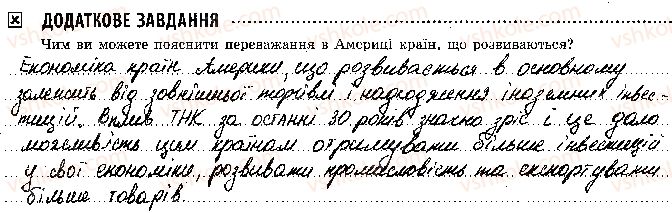 ДОДАТКОВЕ ЗАВДАННЯ
Чим ви можете пояснити переважання в Америці країн, що розвиваються?
Економіка країн Америки, що розвивається в основному
залежить від зовнішньої торівлі і надходження іноземних інвес-
тицій. Вплив ТНК за останні 30 років значно зріс і це дало
можливість цим країнам отримувати більше інвестицій
у свої економіки, розвивати промисловість та експортувати
більше товарів.